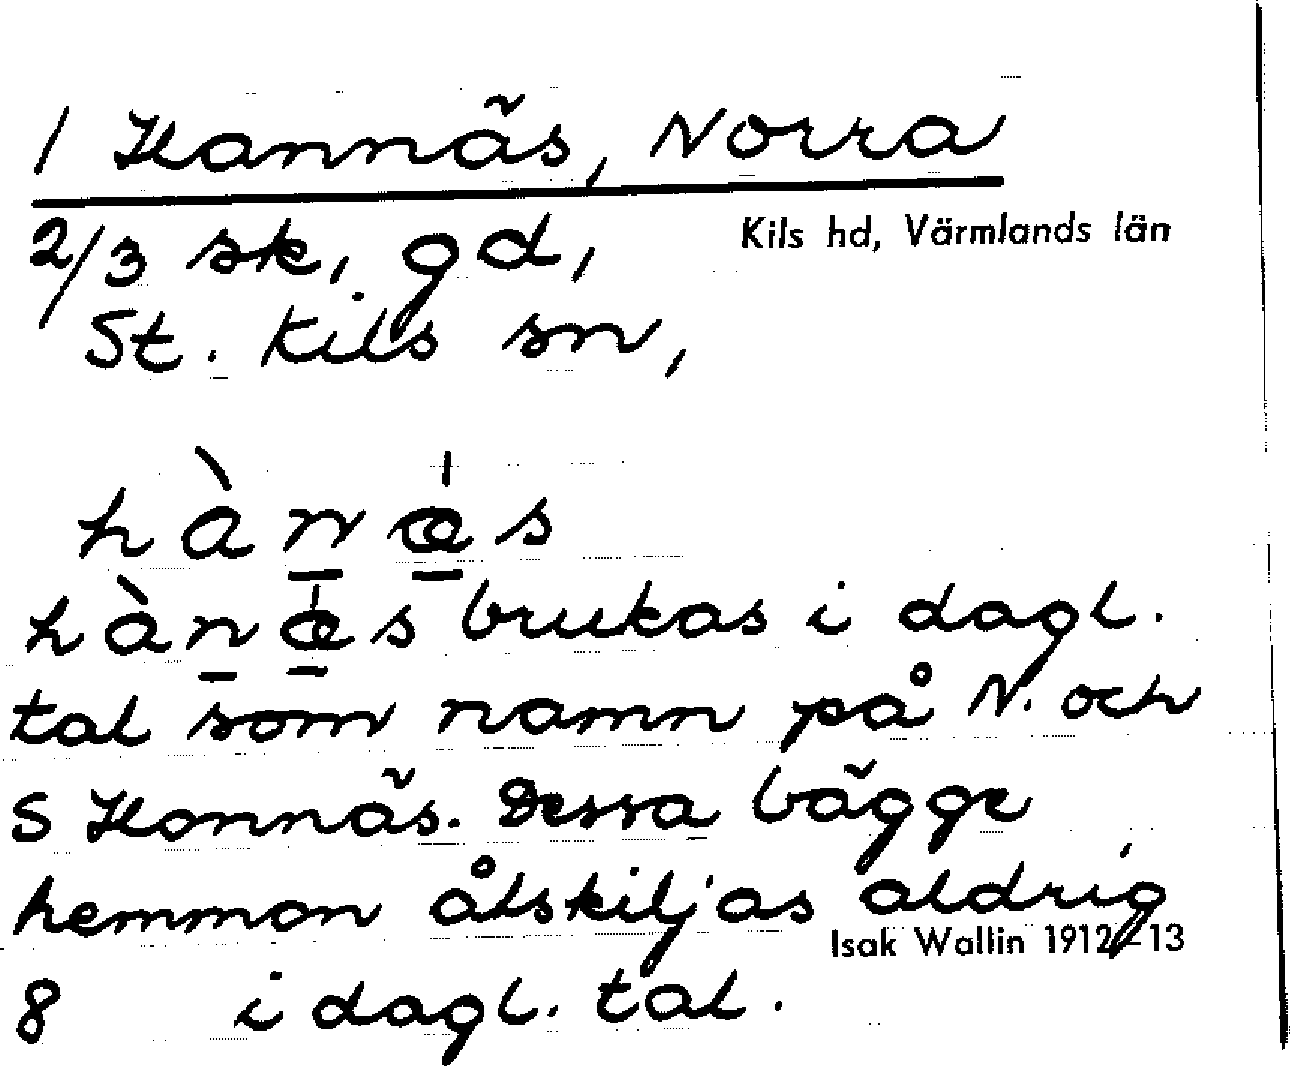 1 Hannäs, Norra
2/3 sk, gd, Kils hd, Värmlands län
St. Kils sn,
hànæ̀s
hànæ̀s brukas i dagl.
tal som namn på N. och
S Hannäs. Dessa bägge
hemman åtskiljas aldrig
Isak Wallin 1912–13
8 i dagl. tal.